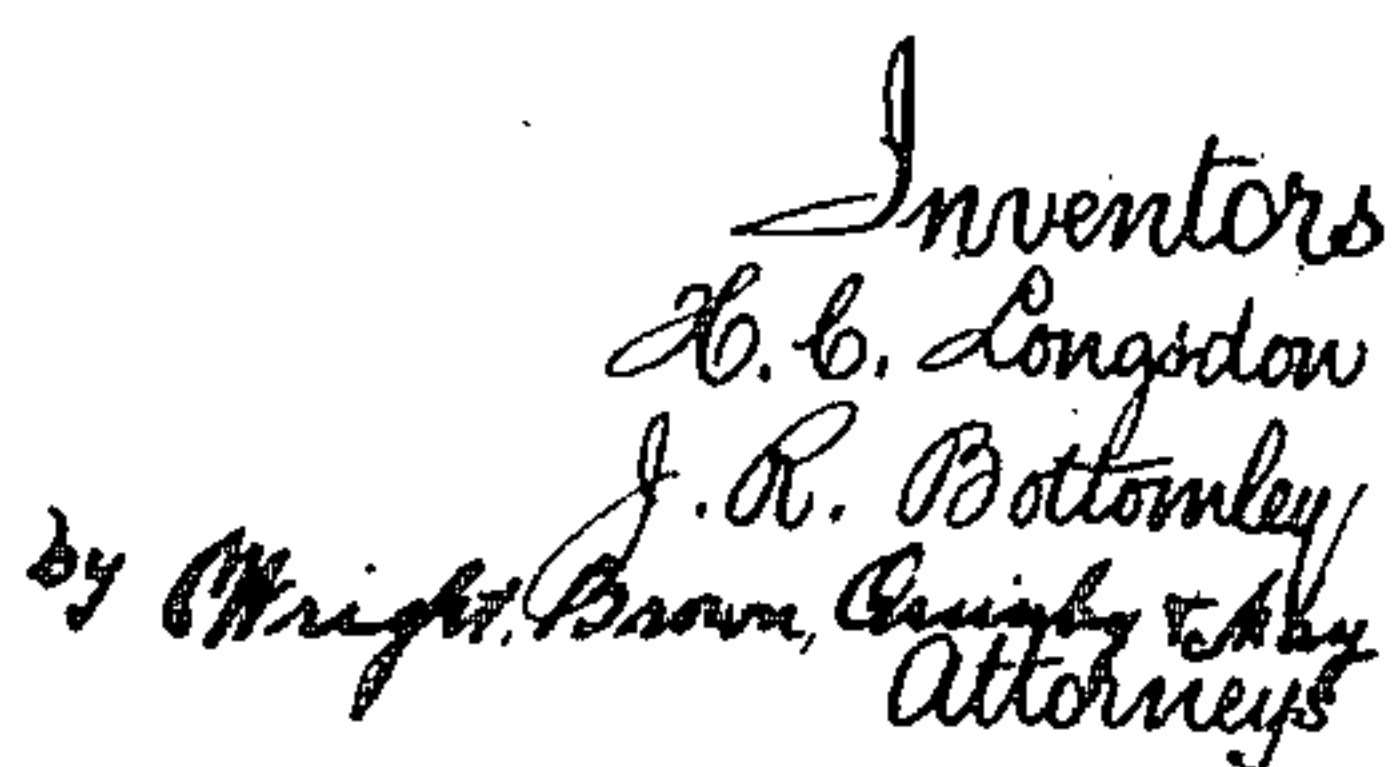 Inventors
H. C. Longsdon
J. R. Bottomley
by Wright, Brown, Quinby & May
Attorneys